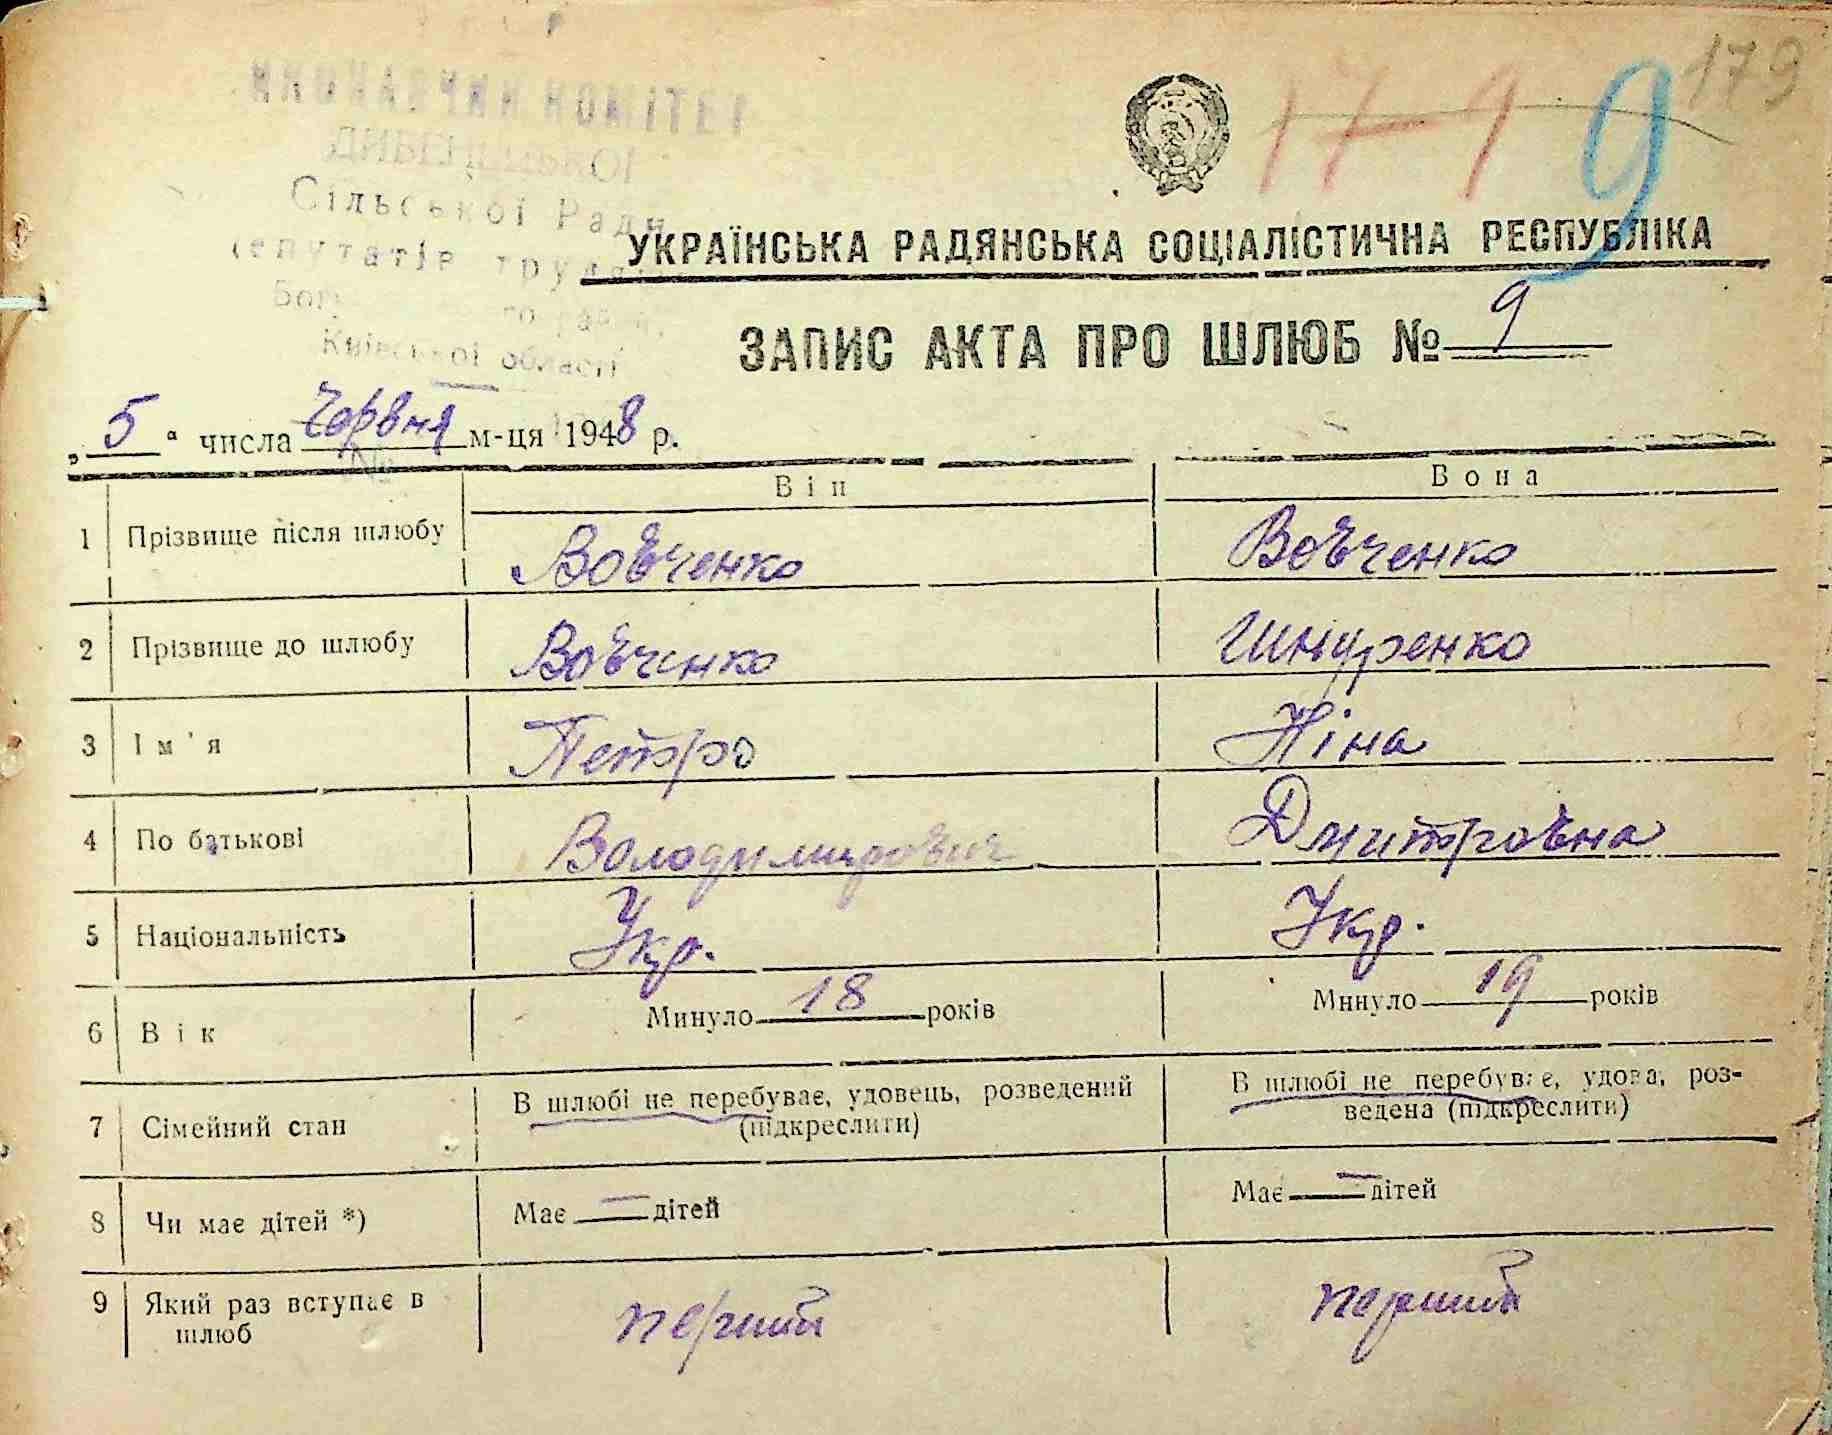 179
17 9 9
ВИКОНАВЧИЙ КОМІТЕТ
Сільської Ради
депутатів трудящ
Київської області
УКРАЇНСЬКА РАДЯНСЬКА СОЦІАЛІСТИЧНА РЕСПУБЛІКА
ЗАПИС АКТА ПРО ШЛЮБ № 9
„5“ числа Червня м-ця 1948 р.
Він Вона
1 Прізвище після шлюбу Вовченко Вовченко
2 Прізвище до шлюбу Вовченко Шнуренко
3 Ім'я Петро Ніна
4 По батькові Володимирович Дмитровна
5 Національність Укр. Укр.
6 Вік Минуло 18 років Минуло 19 років
7 Сімейний стан В шлюбі не перебуває, удовець, розведений (підкреслити) В шлюбі не перебуває, удова, роз-
ведена (підкреслити)
8 Чи має дітей *) Має — дітей Має — дітей
9 Який раз вступає в
шлюб перший перший